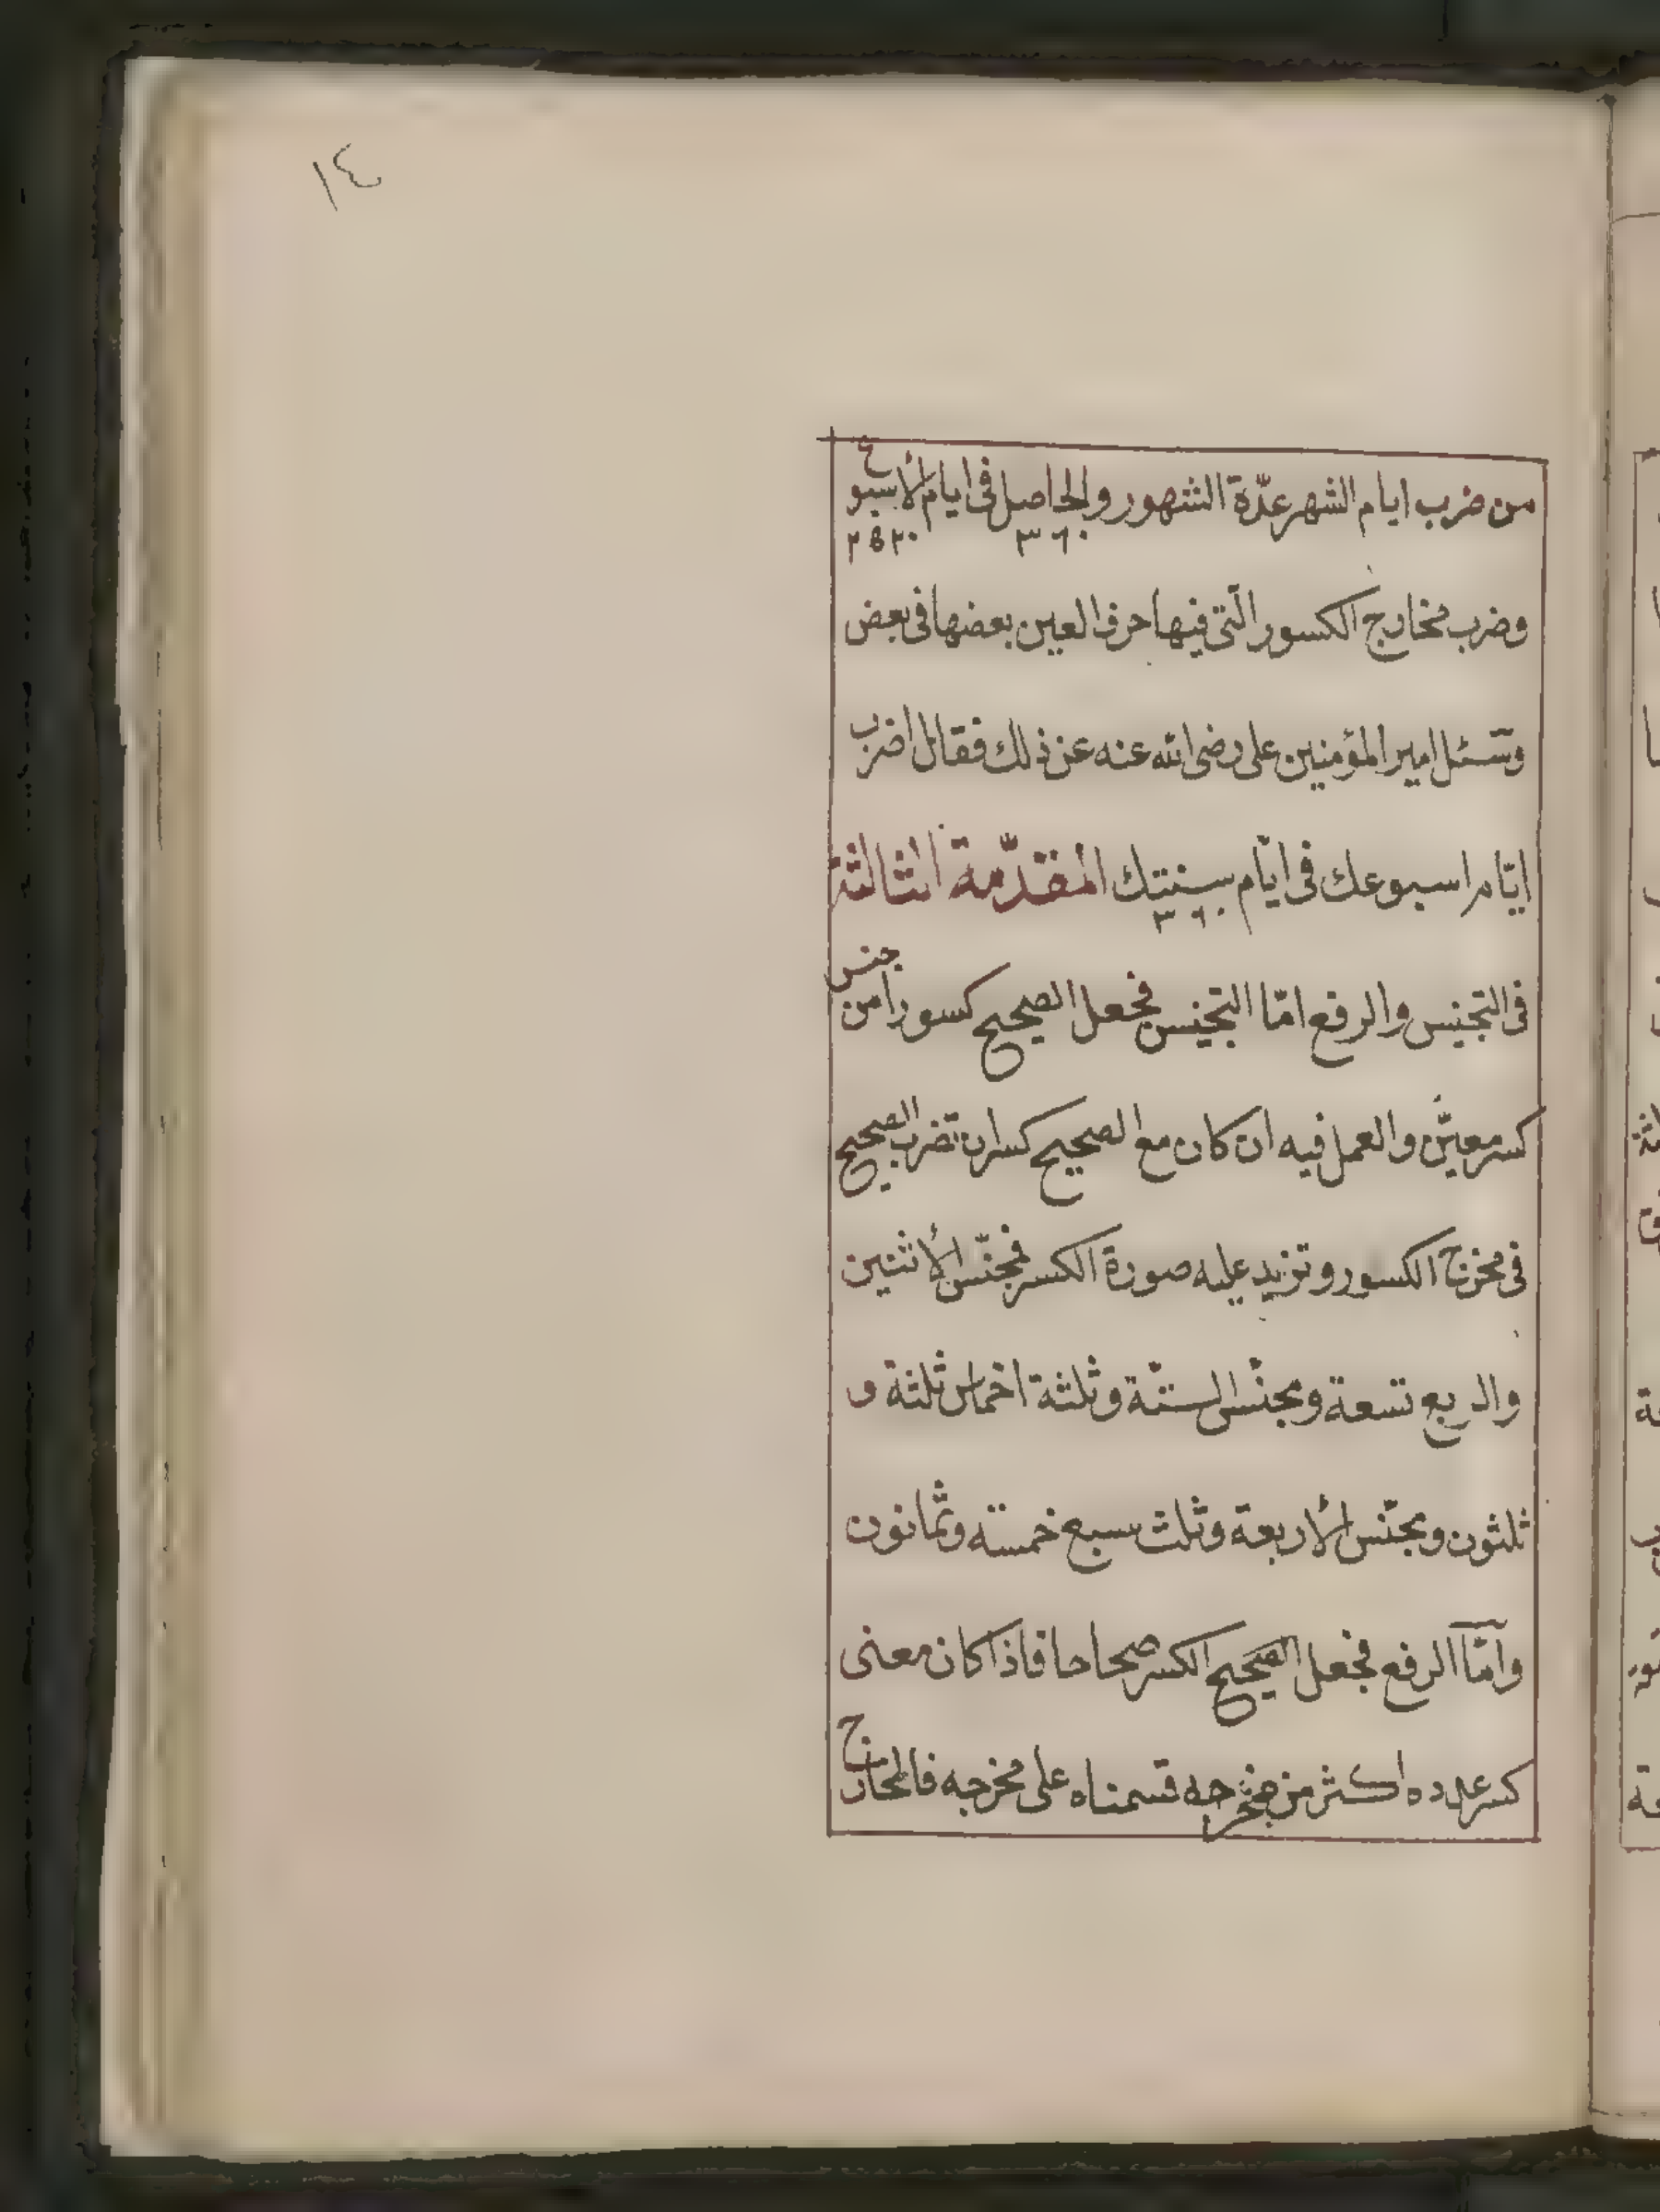 ١٤
من ضرب ايام الشهر عدّة الشهور والحاصل فى ايام الأسبوع
٣٦٠ ٢٥٢٠
وضرب مخارج الكسور الّتى فيها حرف العين بعضها فى بعض
وسئل امير المؤمنين على رضى الله عنه عن ذلك فقال اضرب
ايّام اسبوعك فى ايّام سنتك المقدّمة الثالثة
٣٦٠
فى التجنيس والرفع امّا التجنيس فجعل الصحيح كسورا من جنس
كسر معيّن والعمل فيه ان كان مع الصحيح كسر ان تضرب الصحيح
فى مخرج الكسور وتزيد عليه صورة الكسر فمجنّس الأثنين
والربع تسعة ومجنّس الستّة وثلثة اخماس ثلثة و
ثلثون ومجنّس الأربعة وثلث سبع خمسة وثمانون
وامّا الرفع فجعل الصحيح الكسر صحاحا فاذا كان معنى
كسر عدده اكثر من مخرجه قسمناه على مخرجه فالخارج